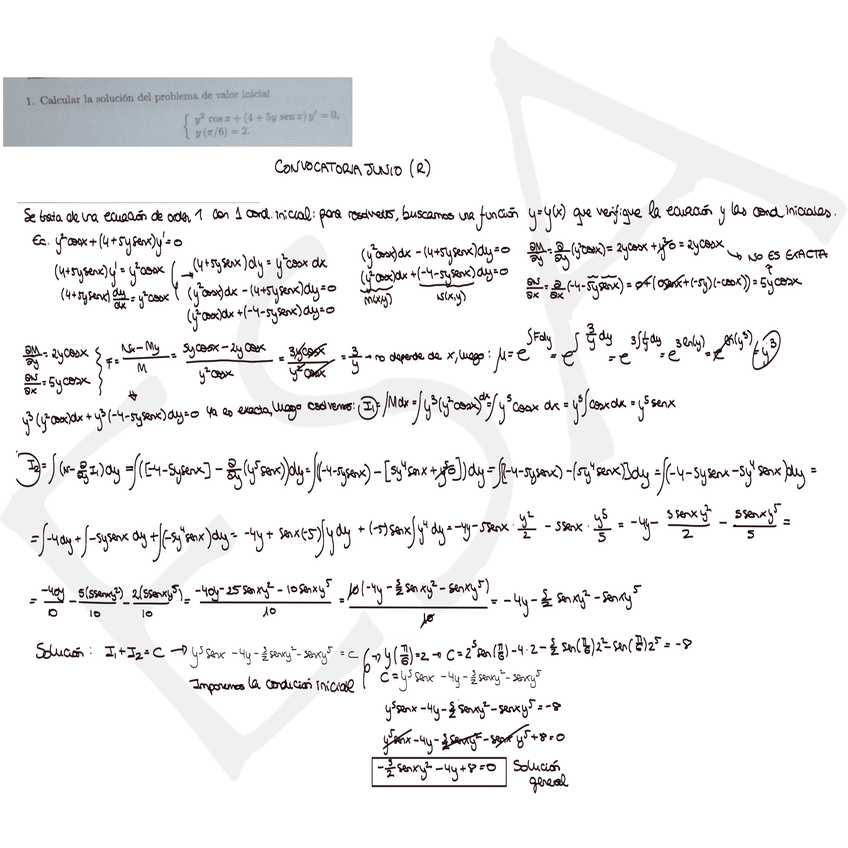 1. Calcular la solución del problema de valor inicial
{ y² cos x + (4 + 5y sen x) y' = 0,
y (π/6) = 2.
CONVOCATORIA JUNIO (R)
Se trata de una ecuación de orden 1 con 1 cond. inicial: para resolverlo, buscamos una función y=y(x) que verifique la ecuación y las cond iniciales.
Ec. y²cosx+(4+5ysenx)y'=0
(4+5ysenx)y' = y²cosx
(4+5ysenx) dy/dx = y²cosx
→ (4+5ysenx)dy = y²cosx dx
(y²cosx)dx - (4+5ysenx)dy=0
(y²cosx)dx+(-4-5ysenx)dy=0
(y²cosx)dx - (4+5ysenx)dy=0
(y²cosx)dx + (-4-5ysenx)dy=0
M(x,y) N(x,y)
∂M/∂y = ∂/∂y (y²cosx) = 2ycosx + y²·0 = 2ycosx
→ NO ES EXACTA
∂N/∂x = ∂/∂x (-4-5ysenx) = (0senx+(-5y)(-cosx)) = 5ycosx
∂M/∂y = 2ycosx
∂N/∂x = 5ycosx
F = Nx - My / M = 5ycosx - 2ycosx / y²cosx = 3ycosx / y²cosx = 3/y → no depende de x, luego: μ = e^∫Fdy = e^∫3/y dy = e^3∫1/y dy = e^3ln(y) = e^ln(y³) = y³
y³(y²cosx)dx + y³(-4-5ysenx)dy=0 Ya es exacta, luego resolvemos: I₁ = ∫Mdx = ∫y³(y²cosx)dx = ∫y⁵cosx dx = y⁵∫cosxdx = y⁵senx
I₂ = ∫(N - ∂/∂y I₁)dy = ∫([-4-5ysenx] - ∂/∂y (y⁵senx))dy = ∫((-4-5ysenx) - [5y⁴senx + y⁵0])dy = ∫[(-4-5ysenx) - (5y⁴senx)]dy = ∫(-4-5ysenx-5y⁴senx)dy =
= ∫-4dy + ∫-5ysenx dy + ∫(-5y⁴senx)dy = -4y + senx(-5)∫ydy + (-5)senx∫y⁴dy = -4y - 5senx · y²/2 - 5senx · y⁵/5 = -4y - 5senxy²/2 - 5senxy⁵/5 =
= -40y/10 - 5(5senxy²)/10 - 2(5senxy⁵)/10 = -40y-25senxy²-10senxy⁵ / 10 = 10(-4y-5/2 senxy²-senxy⁵) / 10 = -4y-5/2 senxy²-senxy⁵
Solución: I₁+I₂=C → y⁵senx -4y-5/2 senxy²-senxy⁵ = C
→ y(π/6)=2 → C = 2⁵sen(π/6)-4·2-5/2 sen(π/6)2²-sen(π/6)2⁵ = -8
Imponemos la condición inicial
C = y⁵senx -4y-5/2 senxy²-senxy⁵
y⁵senx-4y-5/2 senxy²-senxy⁵=-8
y⁵senx-4y-5/2 senxy²-senx y⁵+8=0
-5/2 senxy²-4y+8=0
Solución
general